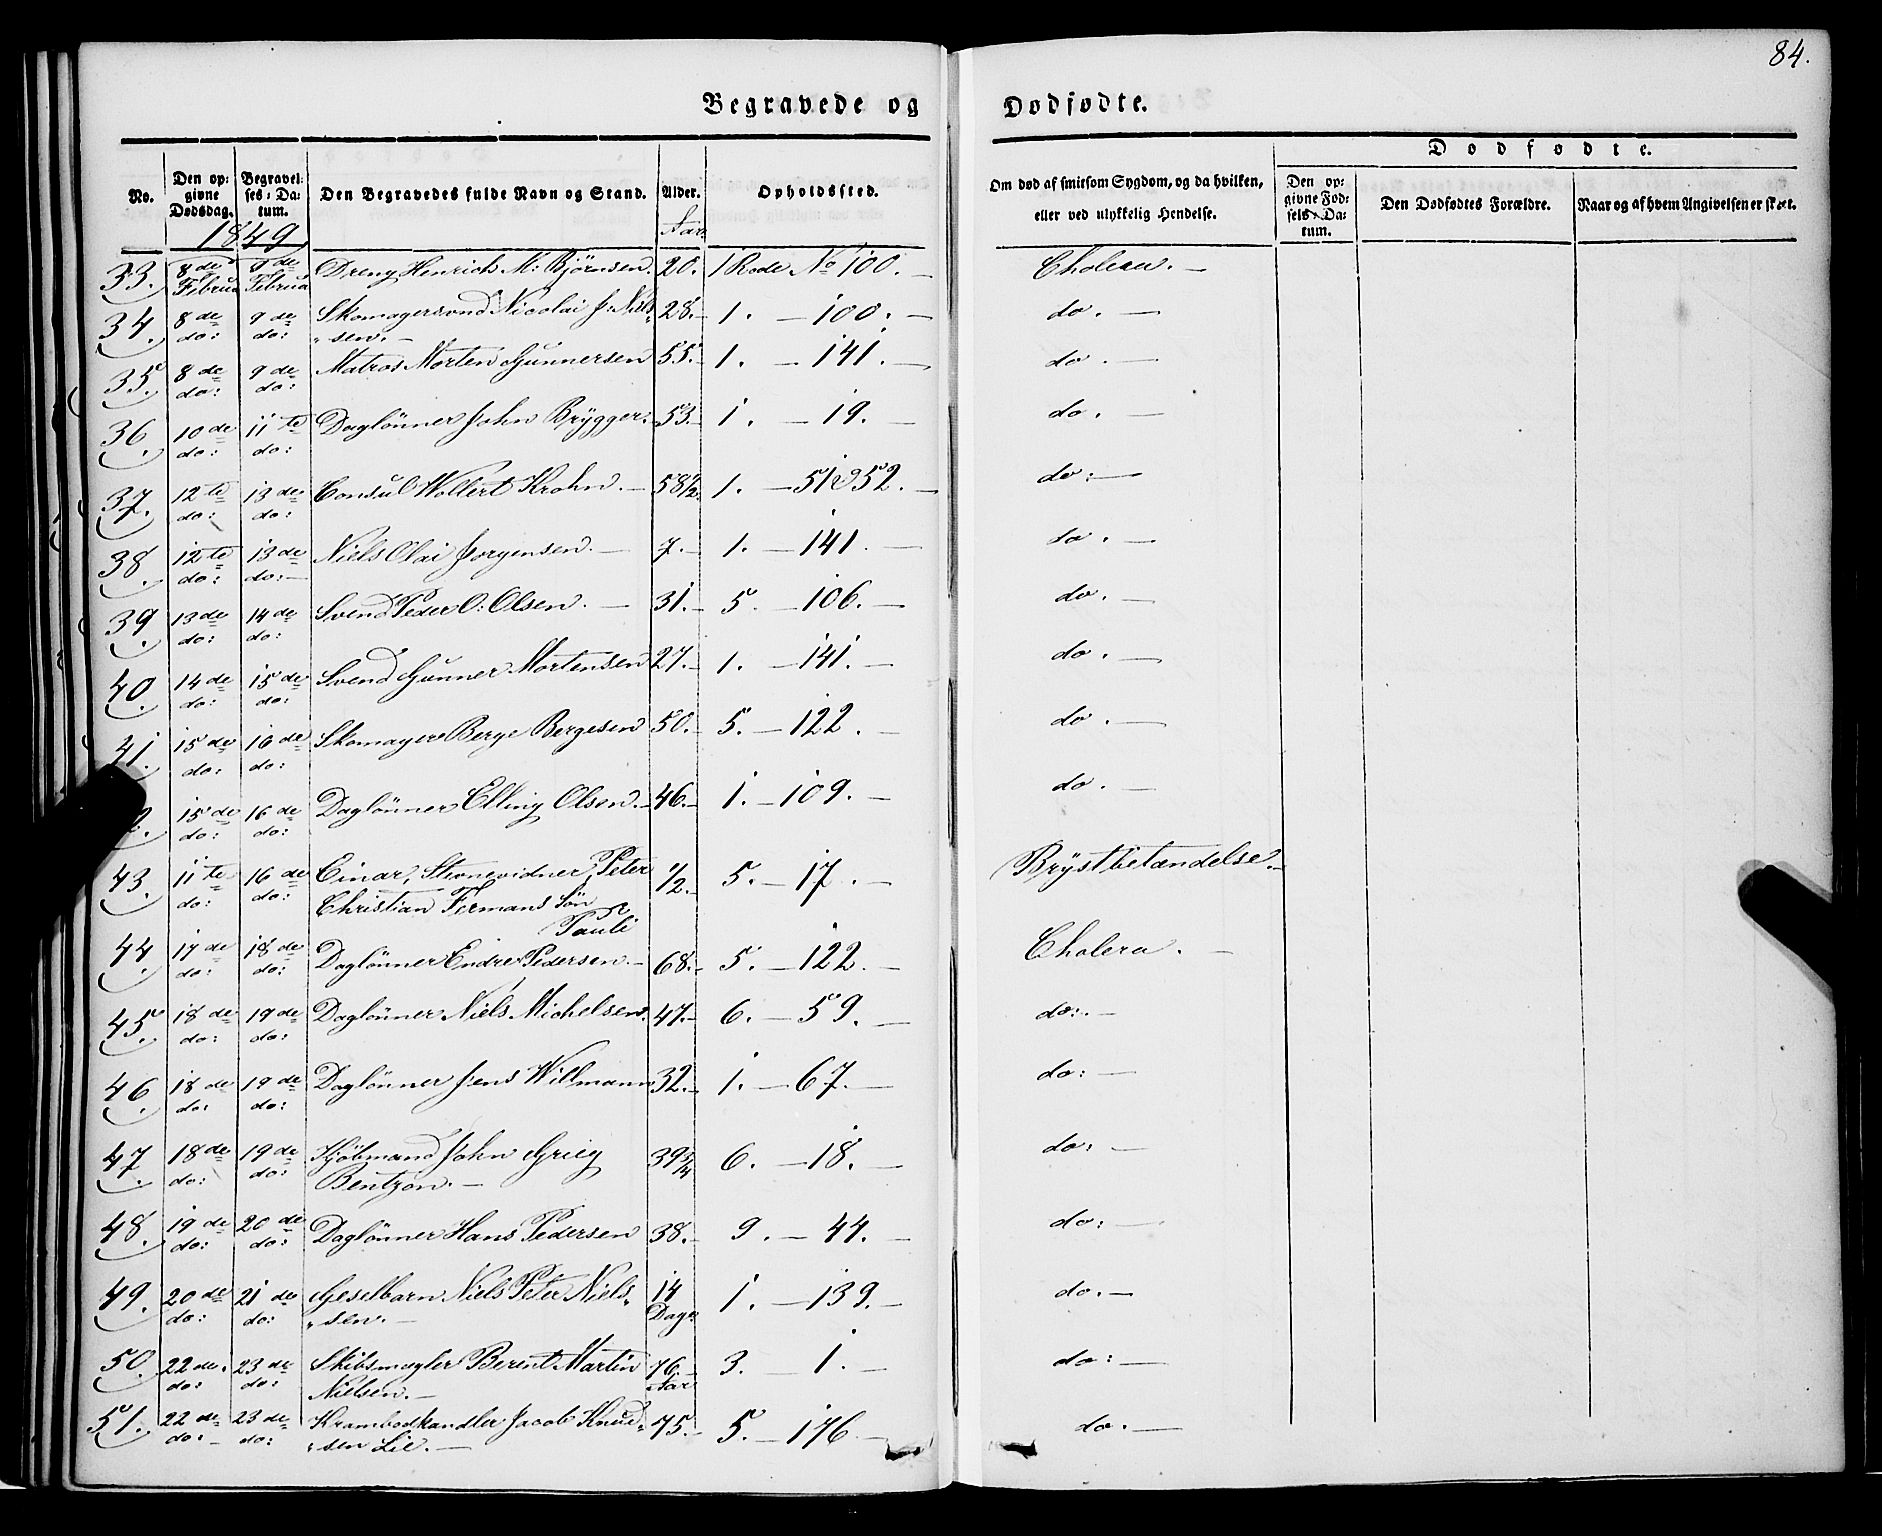 84.
Begravede og Dødfødte.
No. Den op= givne Dødsdag. Begravel= ses=Da= tum. Den Begravedes fulde Navn og Stand. Alder. Opholdssted. Om død af smitsom Sygdom, og da hvilken, eller ved ulykkelig Hendelse. Dødfødte.
Den op= givne Fød= sels=Da= tum. Den Dødfødtes Forældre. Naar og af hvem Angivelsen er skeet.
1849 Aar.
33. 8de Februa 9de Februa Dreng Henrich M: Björnsen. 20. 1 Rode No 100. Cholera.
34. 8de do: 9de do: Skomagersvend Nicolai J: Niel= 28. 1. 100. do.
"sen.
35. 8de do: 9de do: Matros Morten Gunnersen 55. 1. 141. do.
36. 10de do: 11te do: Daglönner John Brygger. 53. 1. 19. do.
37. 12te do: 13de do: Consul Wollert Krohn. 58 1/2. 1. 51&52. do:
38. 12te do: 13de do: Niels Olai Jorgensen. 7. 1. 141. do.
39. 13de do: 14de do: Svend Peder O: Olsen. 31. 5. 106. do.
40. 14de do: 15de do: Svend Gunner Mortensen 27. 1. 141. do.
41. 15de do: 16de do: Skomager Berge Bergesen 50. 5. 122. do.
2. 15de do: 16de do: Daglönner Elling Olsen. 46. 1. 109. do.
43. 11te do: 16de do: Einar, Stevnevidner Peter 1/2. 5. 17. Brystbetændelse.
Christian Fermans Sön
Pauli
44. 17de do: 18de do: Daglönner Endre Pedersen. 68. 5. 122. Cholera.
45. 18de do: 19de do: Daglönner Niels Michelsen. 47. 6. 59. do:
46. 18de do: 19de do: Daglönner Jens Willmann 32. 1. 67. do:
47. 18de do: 19de do: Kjöbmand John Grieg 39 3/4 6. 18. do:
Bentzon.
48. 19de do: 20de do: Daglönner Hans Pedersen 38. 9. 44. do:
49. 20de do: 21de do: Geselbarn Niels Peter Niels= 14 Dage 1. 139. do.
"sen.
50. 22de do: 23de do: Skibsmægler Berent Martin 76. Aar 3. 1. do:
Nielsen.
51. 22de do: 23de do: Krambodhandler Jacob Knud= 75. 5. 176 do.
"sen Lie.